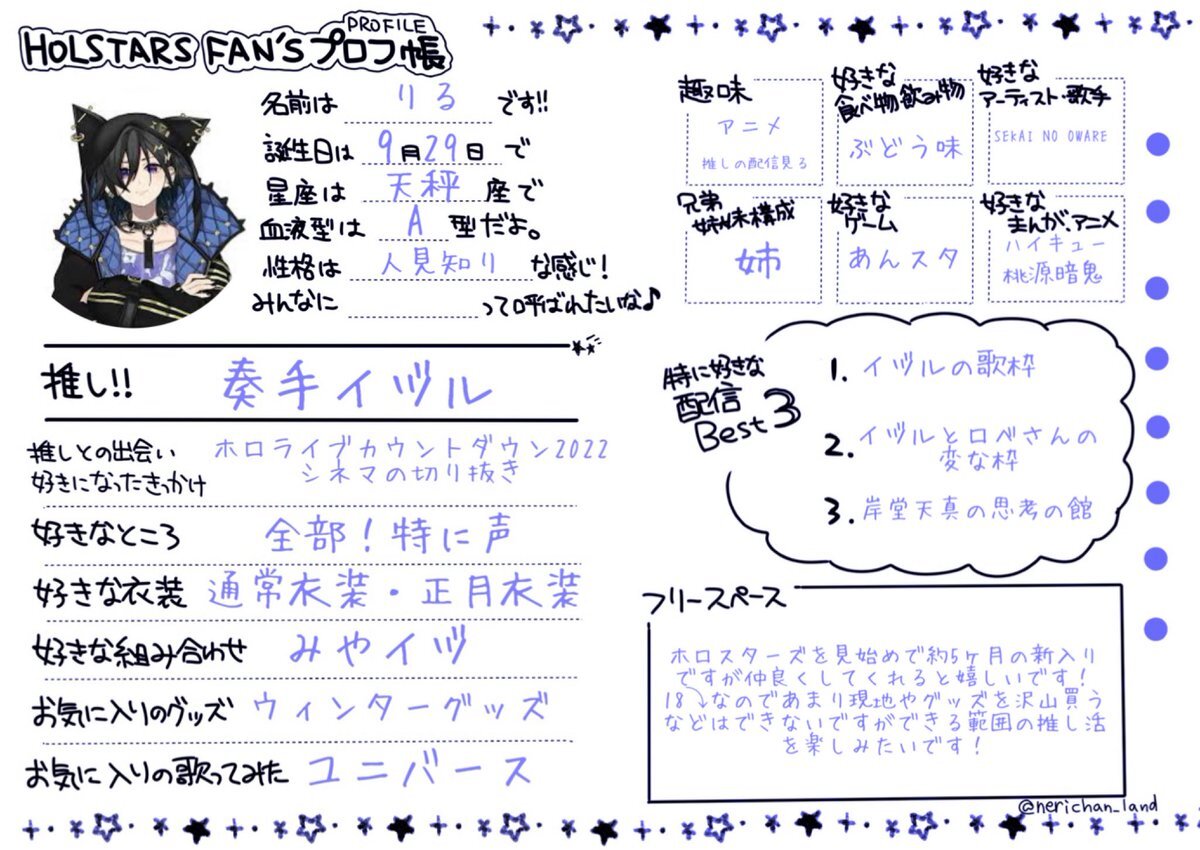 HOLSTARS FAN'Sプロフ帳
PROFILE
名前は りる です!!
誕生日は 9月29日 で
星座は 天秤 座で
血液型は A 型だよ。
性格は 人見知り な感じ!
みんなに って呼ばれたいな♪
趣味
アニメ
推しの配信見る
好きな
食べ物飲み物
ぶどう味
好きな
アーティスト・歌手
SEKAI NO OWARE
兄弟
姉妹構成
姉
好きな
ゲーム
あんスタ
好きな
まんが、アニメ
ハイキュー
桃源暗鬼
推し!! 奏手イヅル
推しとの出会い
好きになったきっかけ
ホロライブカウントダウン2022
シネマの切り抜き
好きなところ 全部!特に声
好きな衣装 通常衣装・正月衣装
好きな組み合わせ みやイヅ
お気に入りのグッズ ウィンターグッズ
お気に入りの歌ってみた ユニバース
特に好きな
配信
Best3
1. イヅルの歌枠
2. イヅルとロベさんの
変な枠
3. 岸堂天真の思考の館
フリースペース
ホロスターズを見始めで約5ヶ月の新入り
ですが仲良くしてくれると嬉しいです!
18⤵なのであまり現地やグッズを沢山買う
などはできないですができる範囲の推し活
を楽しみたいです!
@nerichan_land